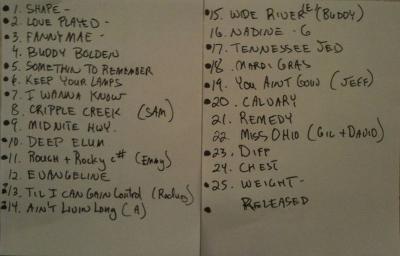 • 1. SHAPE -
• 2. LOVE PLAYED -
• 3. FANNY MAE -
4. BUDDY BOLDEN
• 5. SOMETHIN TO REMEMBER
• 6. KEEP YOUR LAMPS
• 7. I WANNA KNOW
8. CRIPPLE CREEK (SAM)
• 9. MIDNITE HWY.
• 10. DEEP ELUM
• 11. ROUGH + ROCKY C# (Emmy)
12. EVANGELINE
13. TIL I CAN GAIN CONTROL (Rodney)
14. AIN'T LIVIN LONG (A)
• 15. WIDE RIVER (BUDDY)
16. NADINE - G
• 17. TENNESSEE JED
• 18. MARDI GRAS
• 19. YOU AINT GOIN (JEFF)
• 20. CALVARY
21. REMEDY
22. MISS OHIO (GIL + DAVID)
• 23. DIFF
24. CHEST
• 25. WEIGHT -
• RELEASED